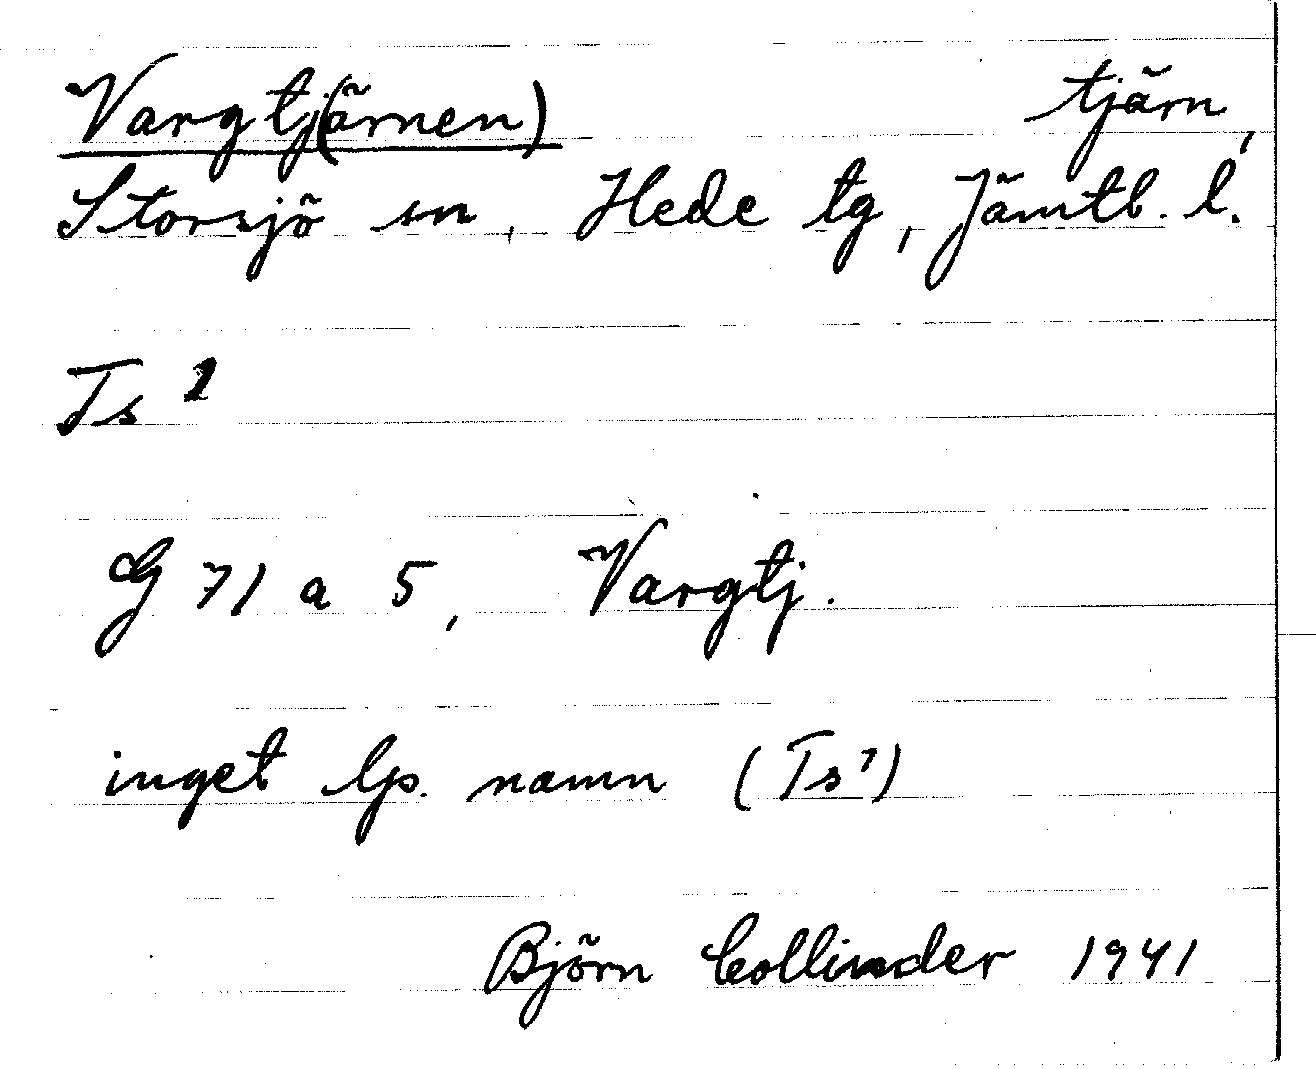 Vargtj(ärnen) tjärn,
Storsjö sn, Hede tg, Jämtl. l.
Ts¹
G 71 a 5, Vargtj.
inget lp. namn (Ts¹)
Björn Collinder 1941